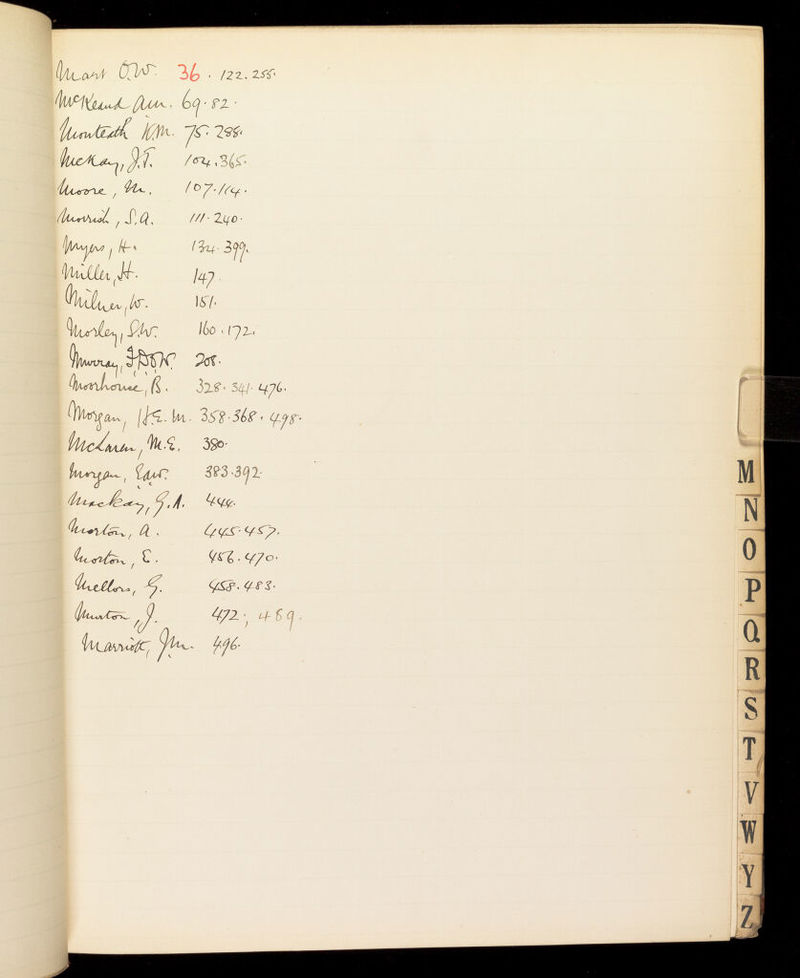 Mart O.W. 36 . 122. 255.
McKeand Am. 69. 82.
Monteath 75. 288.
McKay, J.T. 104. 365.
Moore, M. 107. 114.
Morrish, S.A. 111. 240.
Myers, H. 134. 399.
Miller, H. 147.
Milner, W. 151.
Morley, S.W. 160. 172.
Murray, 208.
Moorhouse, B. 328. 341. 476.
Morgan, H.E.M. 358. 368. 498.
McLaren, M.E. 380.
Morgan, Edw. 383. 392.
Mackay, G.A. 444.
Morton, A. 445. 457.
Morton, E. 456. 470.
Mellors, G. 458. 483.
Murton, J. 472; 489.
Marriott, Jm. 496.
M
N
O
P
Q
R
S
T
V
W
Y
Z